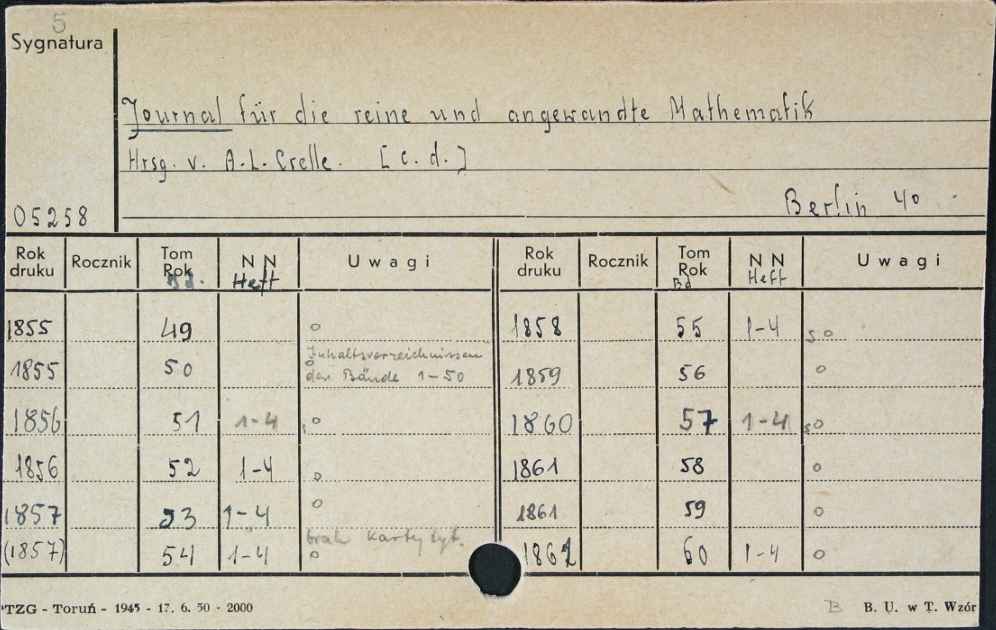 5
Sygnatura
Journal für die reine und angewandte Mathematik
Hrsg. v. A.L. Crelle. [c.d.]
05258
Berlin 4°
Rok druku Rocznik Tom Rok Bd. N N Heft Uwagi Rok druku Rocznik Tom Rok Bd N N Heft Uwagi
1855 49 o 1858 55 1-4 o
1855 50 o Inhaltsverzeichnissen der Bände 1-50 1859 56 o
1856 51 1-4 o 1860 57 1-4 o
1856 52 1-4 o 1861 58 o
1857 53 1-4 o 1861 59 o
(1857) 54 1-4 brak karty tyt. o 1862 60 1-4 o
TZG - Toruń - 1945 - 17. 6. 50 - 2000
B B. U. w T. Wzór